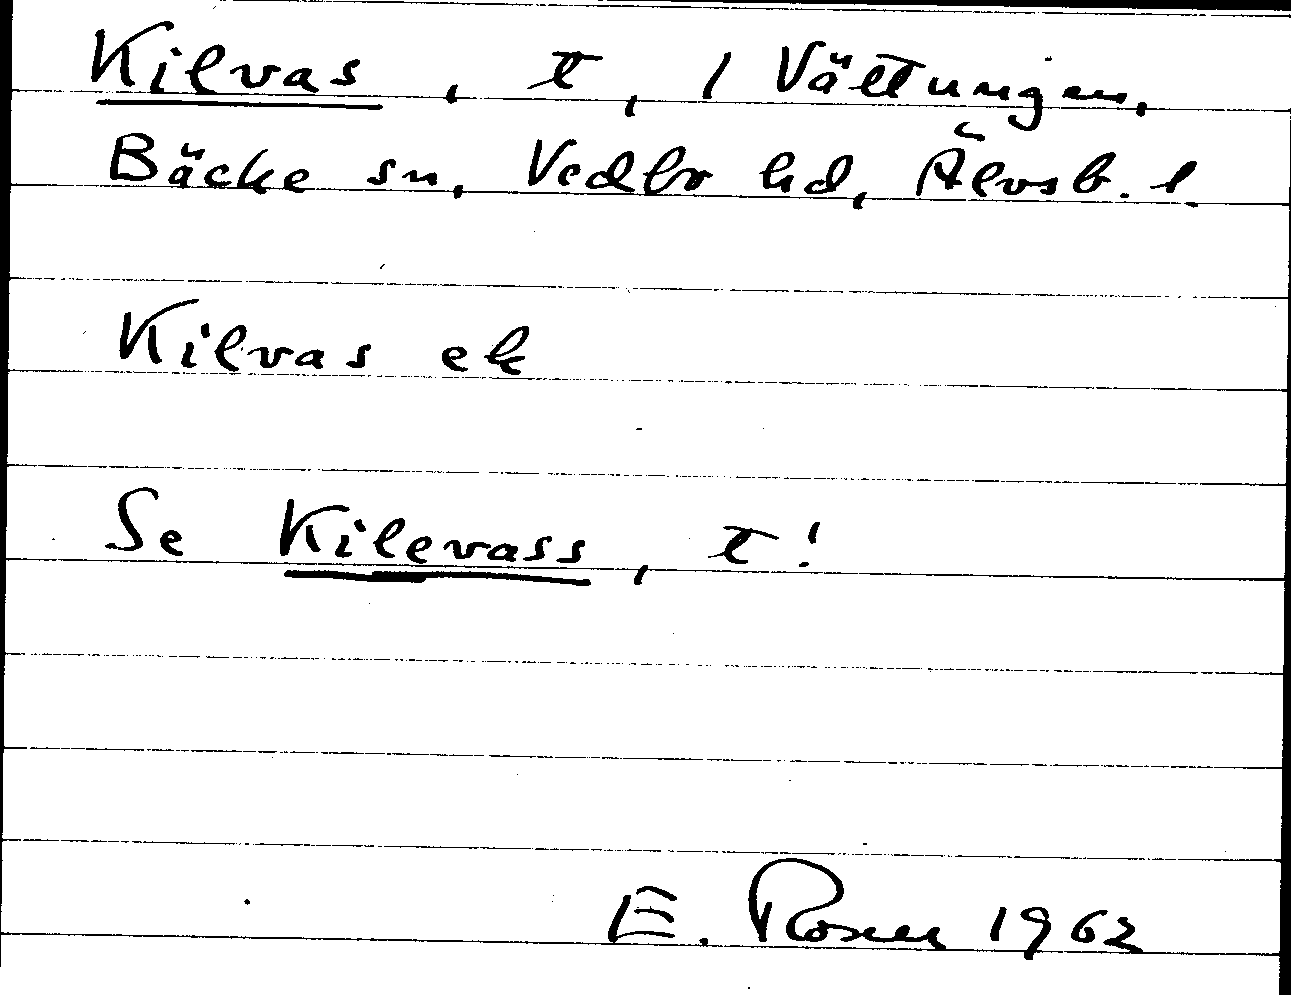 Kilvas, t, / Vättungen,
Bäcke sn, Vedbo hd, Älvsb. l.
Kilvas ek
Se Kilevass, t!
E. Rosen 1962